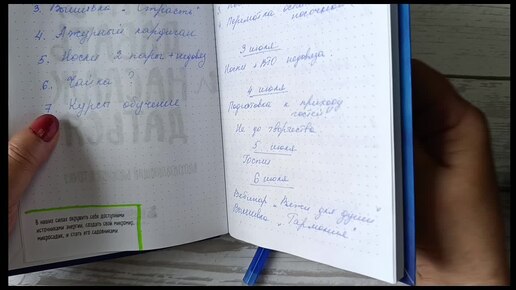 3. Вышивка „Страсть"
4. Ажурный кардиган
5. Носки 2 пары + недовяз
6. Чайка ?
7 Курсы обучение
В наших силах окружить себя доступными
источниками энергии, создать свой микромир,
микросадик, и стать его садовниками
+ Перемотка
3 июля
Носки + КПО недовяза.
4 июля
Подготовка к приходу
гостей
Не до творчества
5 июля
Гости
6 июля
Вебинар „Вяжи для души"
Вышивка „Гармония"